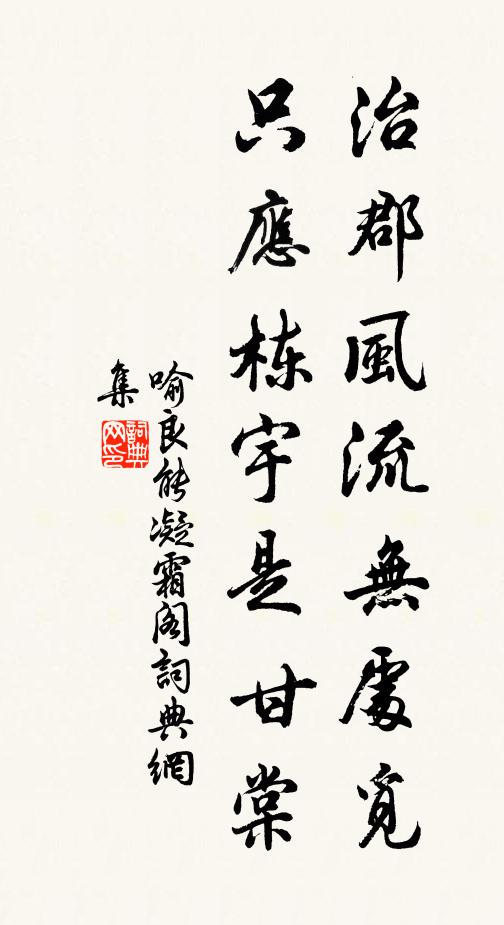 治郡風流無處覓
只應棟宇是甘棠
喻良能凝霜閣詞典網
集
詞典
网印